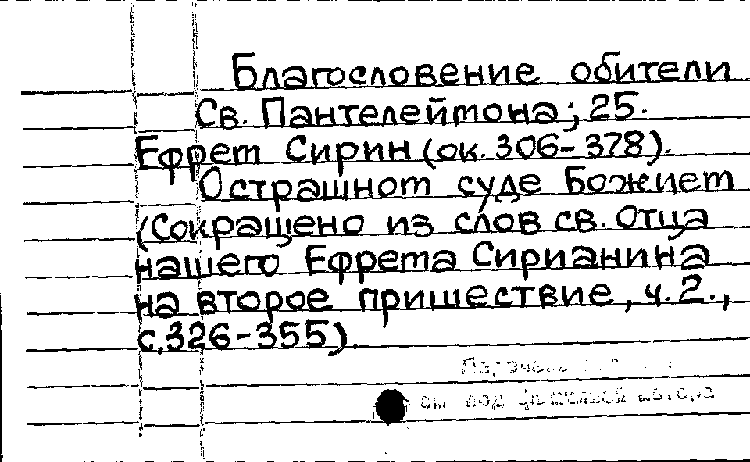 Благословение обители
Св. Пантелеймона; 25.
Ефрем Сирин (ок. 306-378).
О страшном суде Божием
(Сокращено из слов св. отца
нашего Ефрема Сирианина
на второе пришествие, ч.2.,
с.326-355).
под